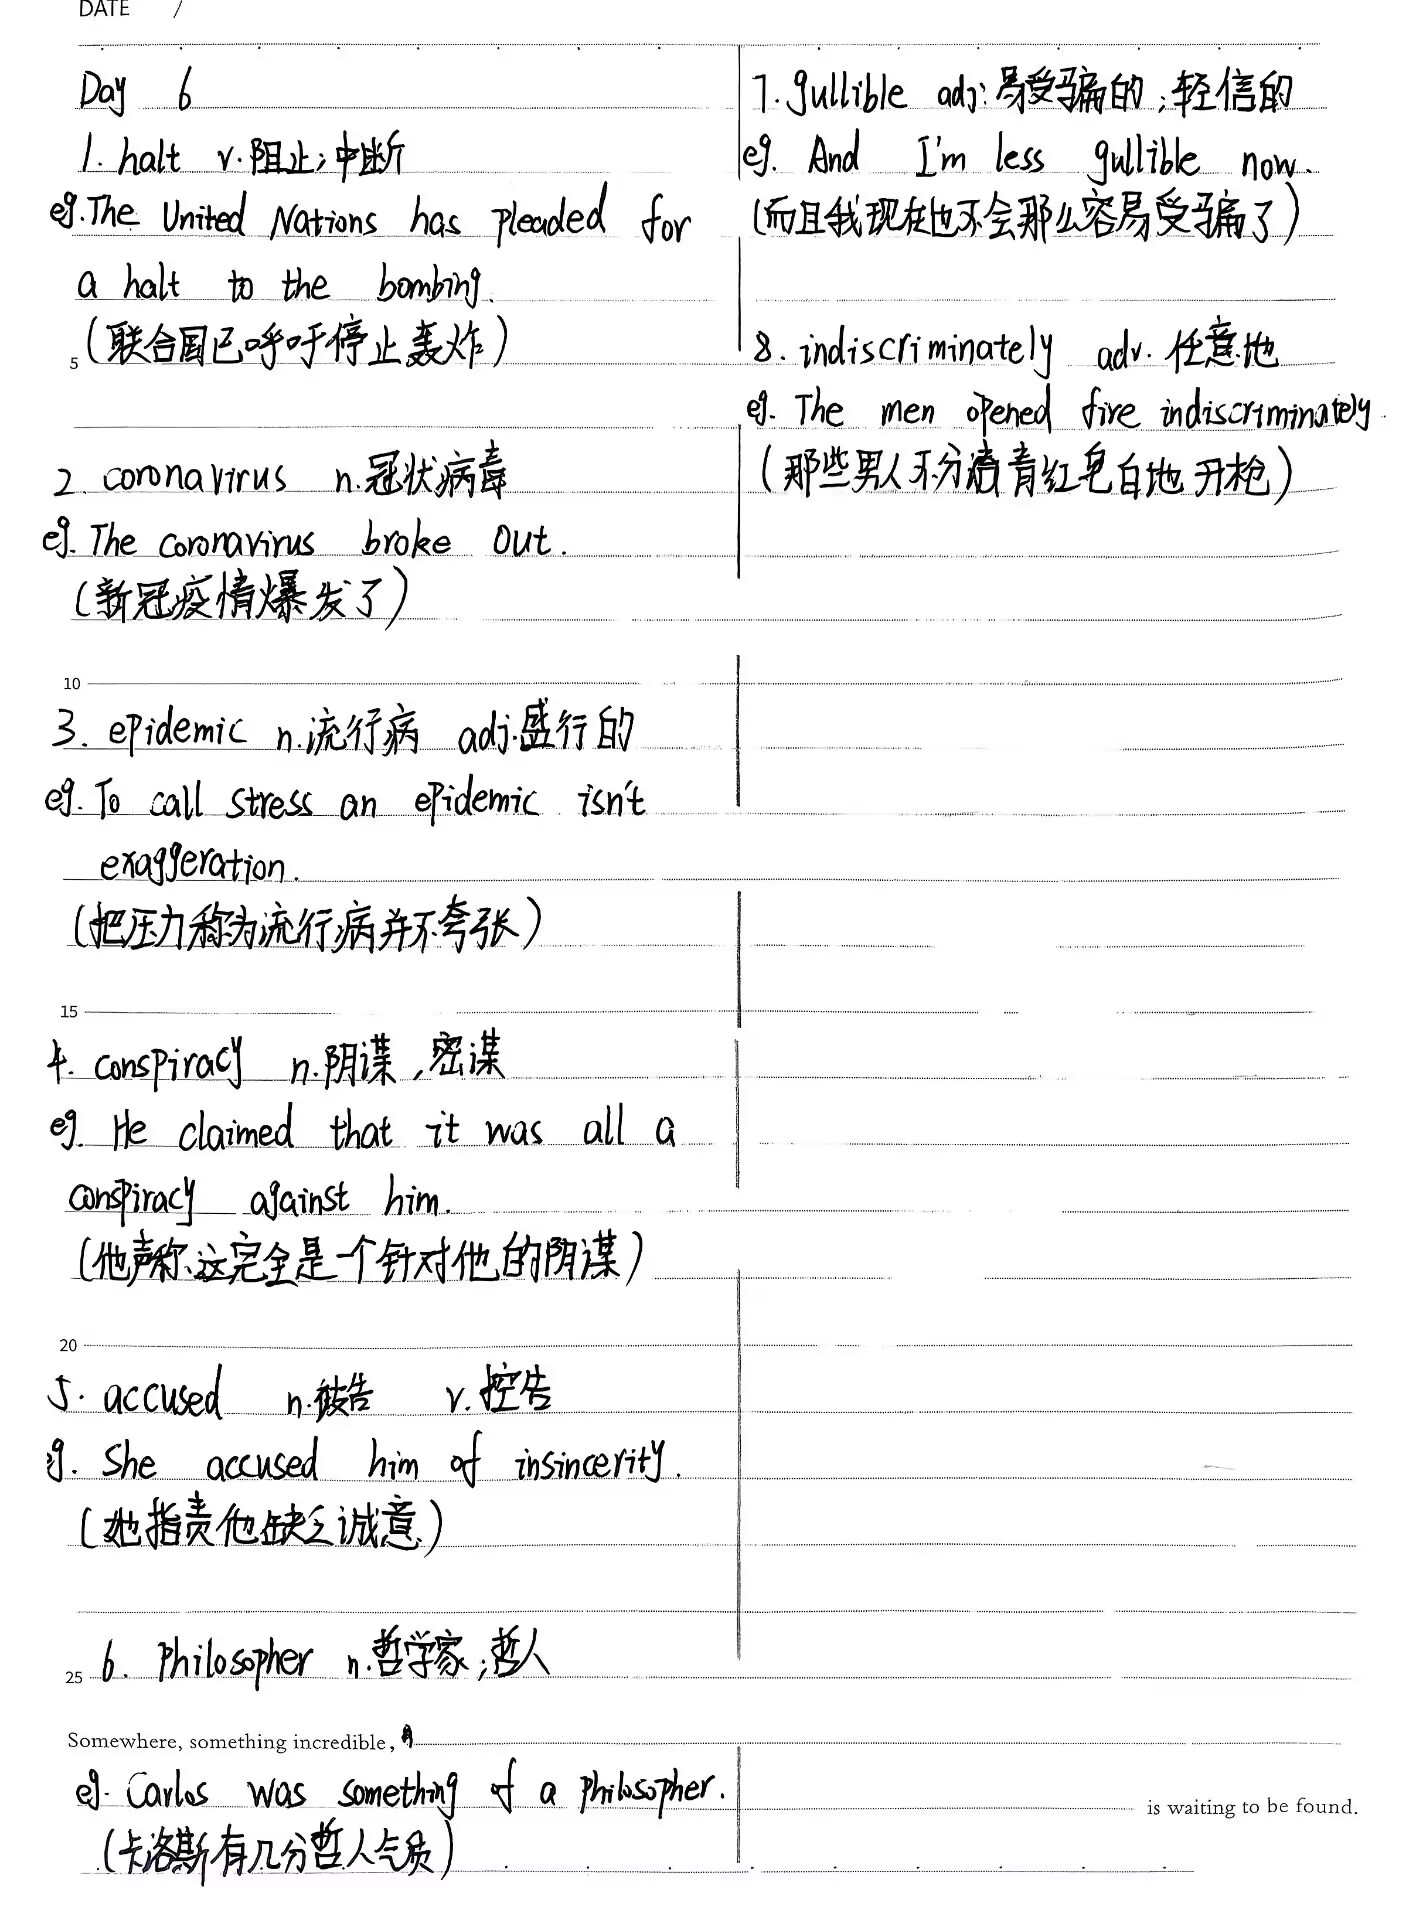 DATE /
Day 6
1. halt v.阻止;中断
eg.The United Nations has pleaded for
a halt to the bombing.
(联合国已呼吁停止轰炸)
5
2. coronavirus n.冠状病毒
eg. The coronavirus broke out.
(新冠疫情爆发了)
10
3. epidemic n.流行病 adj.盛行的
eg. To call stress an epidemic isn't
exaggeration.
(把压力称为流行病并不夸张)
15
4. conspiracy n.阴谋,密谋
eg. He claimed that it was all a
conspiracy against him.
(他声称这完全是一个针对他的阴谋)
20
5. accused n.被告 v.控告
eg. She accused him of insincerity.
(她指责他缺乏诚意)
6. Philosopher n.哲学家;哲人
25
Somewhere, something incredible,
eg. Carlos was something of a philosopher.
(卡洛斯有几分哲人气质)
7. gullible adj:易受骗的;轻信的
eg. And I'm less gullible now.
(而且我现在也不会那么容易受骗了)
8. indiscriminately adv. 任意地
eg. The men opened fire indiscriminately.
(那些男人不分青红皂白地开枪)
is waiting to be found.